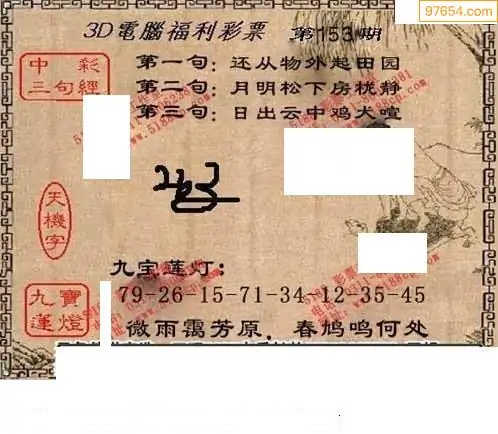 97654.com
3D電腦福利彩票 第153期
中彩
三句經
第一句：还从物外起田园
第二句：月明松下房栊静
第三句：日出云中鸡犬喧
天機字
九寶
蓮燈
九宝莲灯：
79-26-15-71-34 12-35-45
微雨霭芳原，春鸠鸣何处